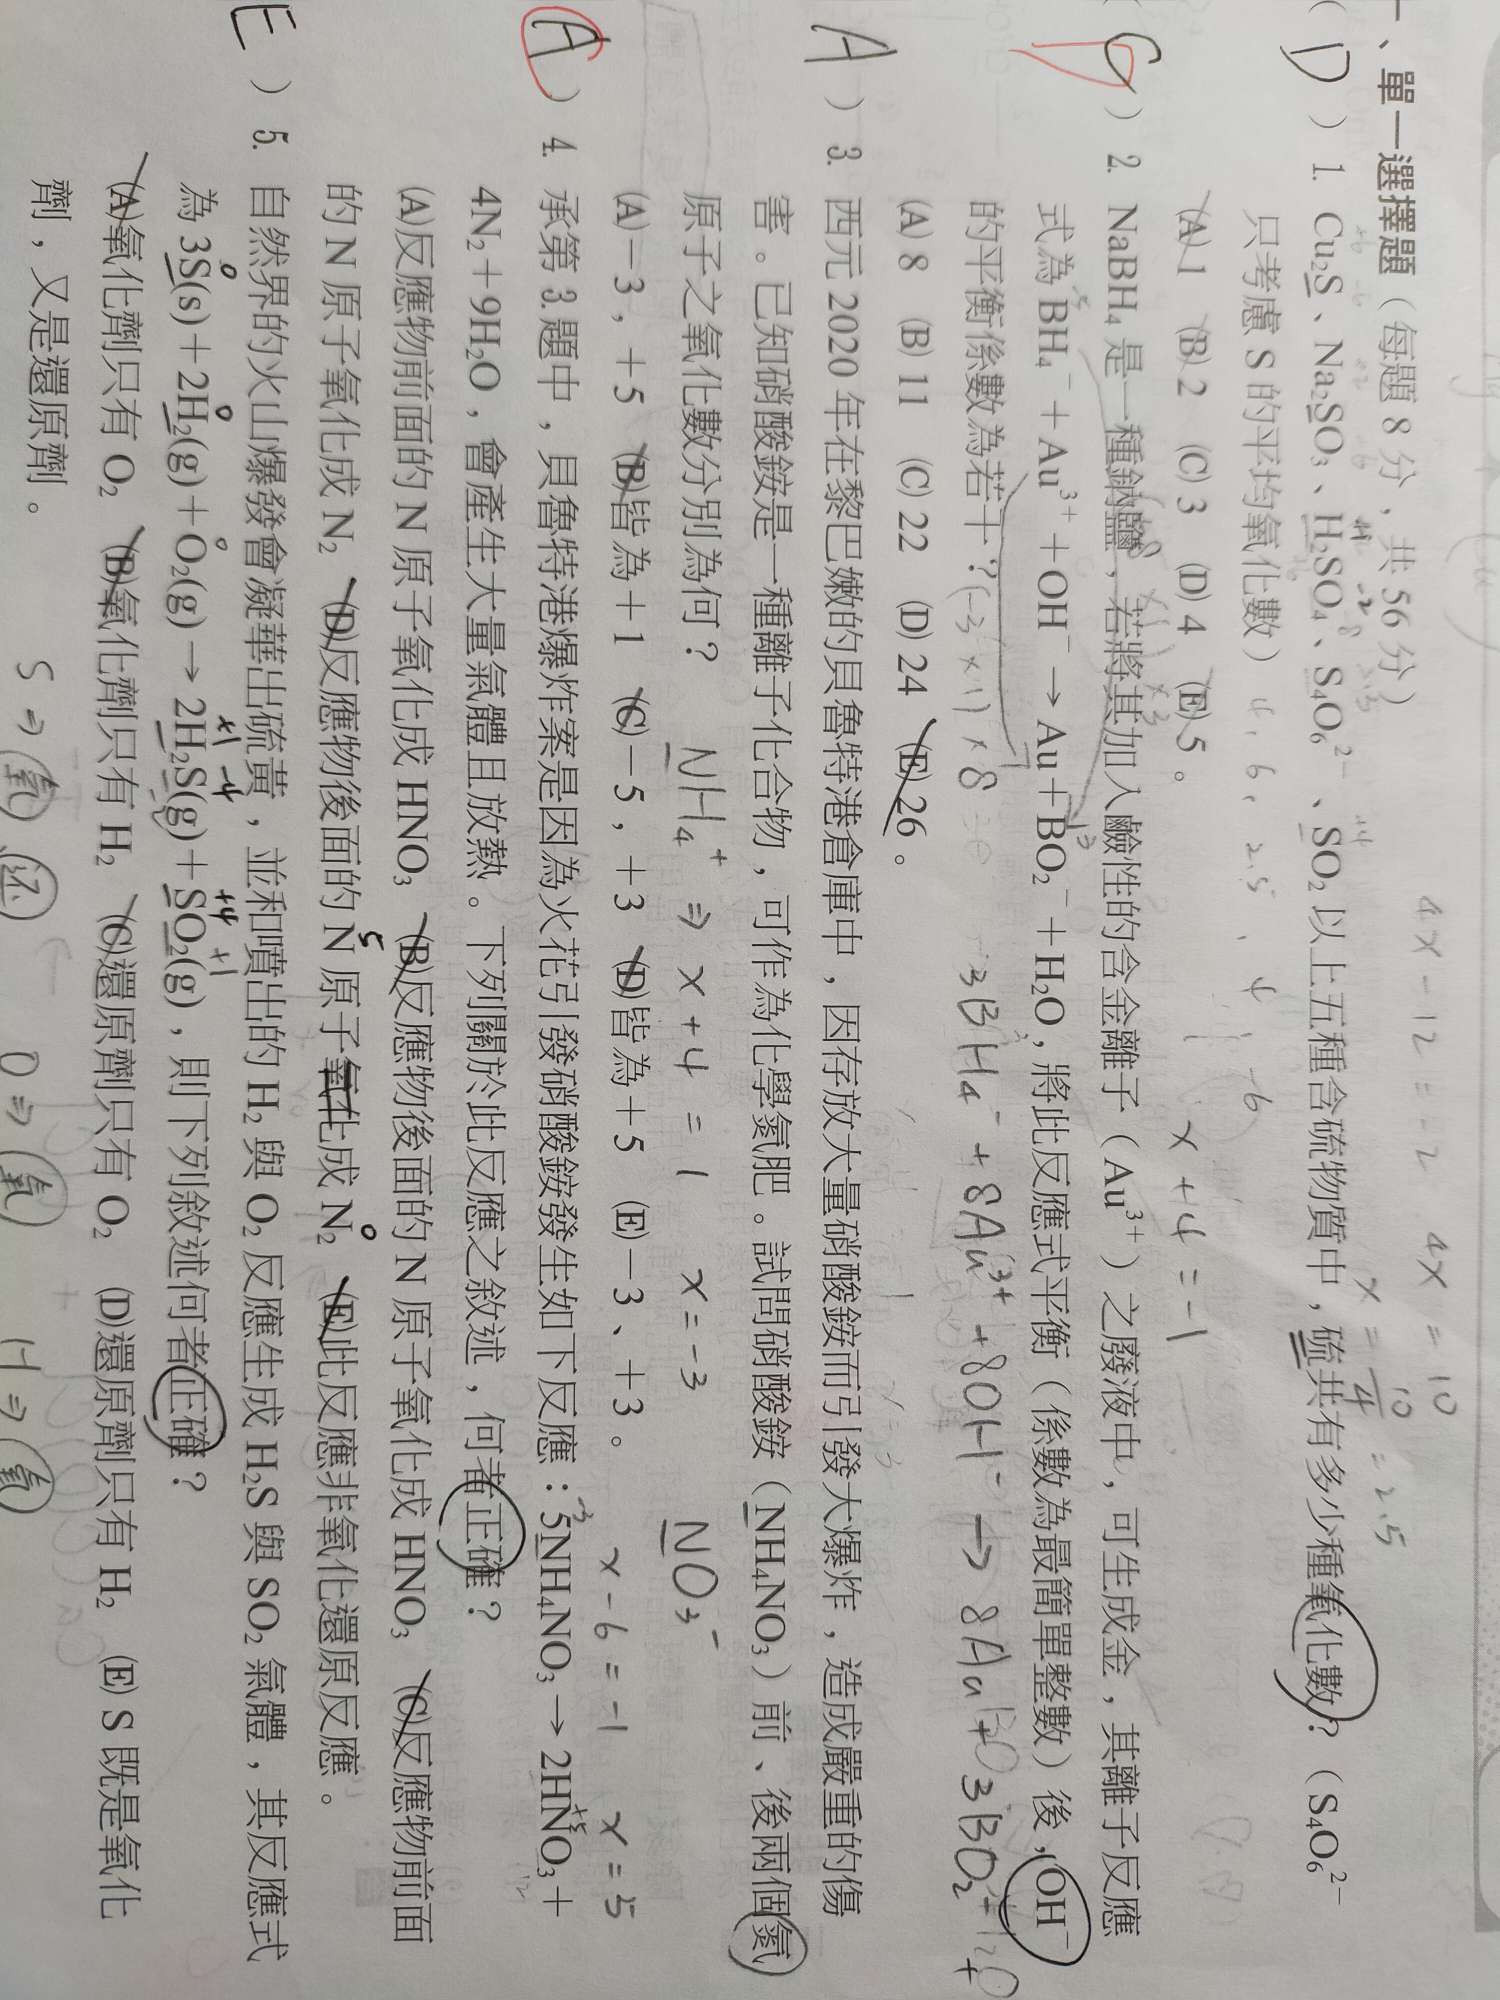 一、單一選擇題（每題 8 分，共 56 分）
4x-12=-2 4x=10
x=10/4=2.5
( D ) 1. Cu₂S、Na₂SO₃、H₂SO₄、S₄O₆²⁻、SO₂ 以上五種含硫物質中，硫共有多少種氧化數？（S₄O₆²⁻
只考慮 S 的平均氧化數）
(A) 1 (B) 2 (C) 3 (D) 4 (E) 5。
x+4=-1
( C ) 2. NaBH₄ 是一種鈉鹽，若將其加入鹼性的含金離子（Au³⁺）之廢液中，可生成金，其離子反應
式為 BH₄⁻＋Au³⁺＋OH⁻→Au＋BO₂⁻＋H₂O，將此反應式平衡（係數為最簡單整數）後，OH⁻
的平衡係數為若干？
3BH₄⁻+8Au³⁺+8OH⁻→8Au+3BO₂⁻+H₂O
(A) 8 (B) 11 (C) 22 (D) 24 (E) 26。
( A ) 3. 西元 2020 年在黎巴嫩的貝魯特港倉庫中，因存放大量硝酸銨而引發大爆炸，造成嚴重的傷
害。已知硝酸銨是一種離子化合物，可作為化學氮肥。試問硝酸銨（NH₄NO₃）前、後兩個氮
原子之氧化數分別為何？
NH₄⁺⇒x+4=1 x=-3 NO₃⁻
(A)－3，＋5 (B)皆為＋1 (C)－5，＋3 (D)皆為＋5 (E)－3、＋3。
x-6=-1 x=5
( A ) 4. 承第 3.題中，貝魯特港爆炸案是因為火花引發硝酸銨發生如下反應：5NH₄NO₃→2HNO₃＋
4N₂＋9H₂O，會產生大量氣體且放熱。下列關於此反應之敘述，何者正確？
(A)反應物前面的 N 原子氧化成 HNO₃ (B)反應物後面的 N 原子氧化成 HNO₃ (C)反應物前面
的 N 原子氧化成 N₂ (D)反應物後面的 N 原子氧化成 N₂ (E)此反應非氧化還原反應。
( E ) 5. 自然界的火山爆發會凝華出硫黃，並和噴出的 H₂ 與 O₂ 反應生成 H₂S 與 SO₂ 氣體，其反應式
為 3S(s)＋2H₂(g)＋O₂(g)→2H₂S(g)＋SO₂(g)，則下列敘述何者正確？
(A)氧化劑只有 O₂ (B)氧化劑只有 H₂ (C)還原劑只有 O₂ (D)還原劑只有 H₂ (E) S 既是氧化
劑，又是還原劑。
S⇒氧 还 O⇒氧 H⇒氧